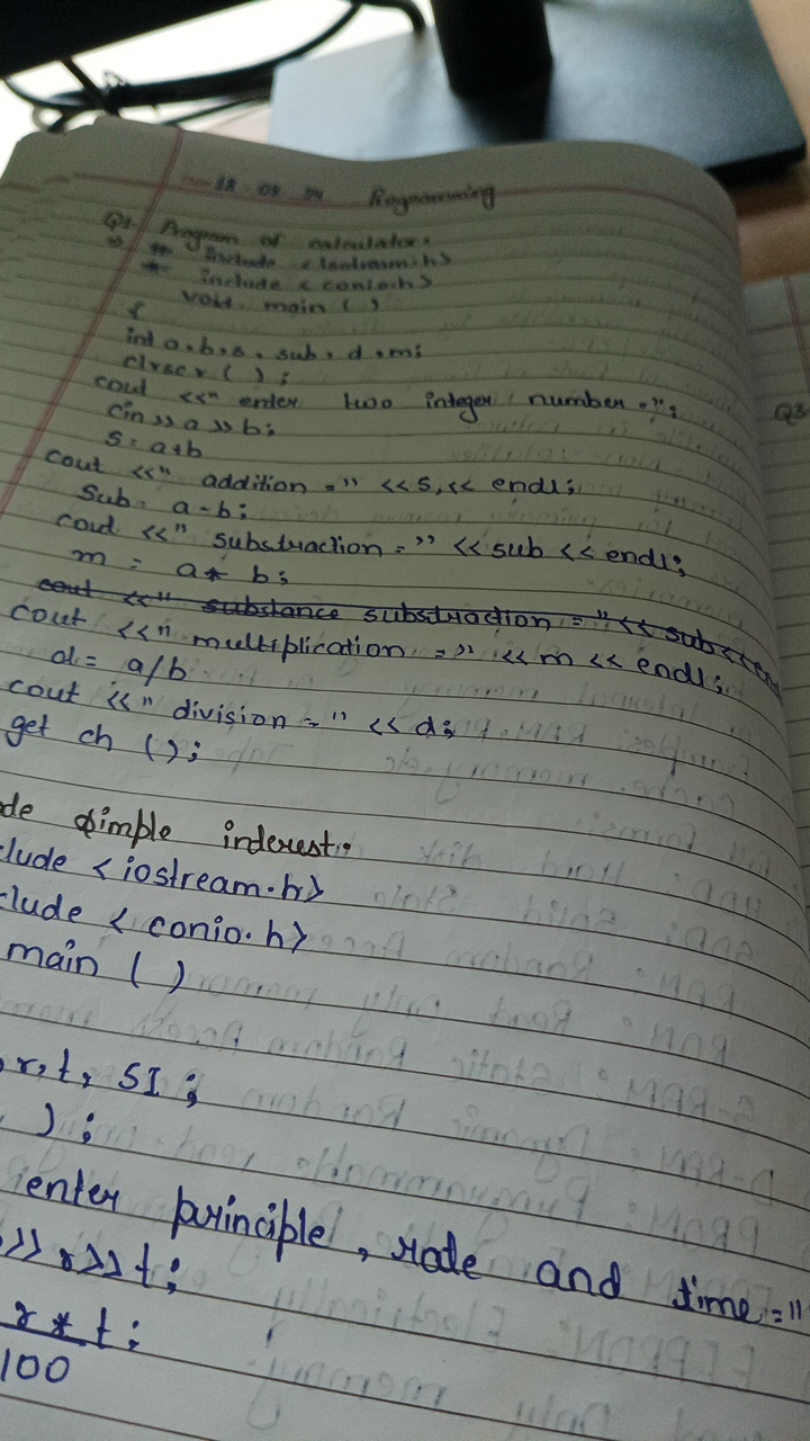 18.09.24 Programming
Q1. Program of calculator.
→ # include <iostream.h>
# include <conio.h>
void main ( )
{
int a, b, s, sub, d, m;
clrscr ( );
cout <<" enter two integer number =";
cin >> a >> b;
s = a+b
cout <<" addition =" << s, << endl;
Sub = a-b;
cout <<" substraction =" << sub << endl;
m = a * b;
cout <<" substance substraction = "<< sub <<
cout <<" multiplication =" << m << endl;
d = a/b
cout <<" division =" << d;
get ch ( );
de simple interest.
clude <iostream.h>
clude < conio.h>
main ( )
r, t, SI ;
) ;
enter principle, rate and time ="
>> r >> t ;
r * t ;
100
Q2